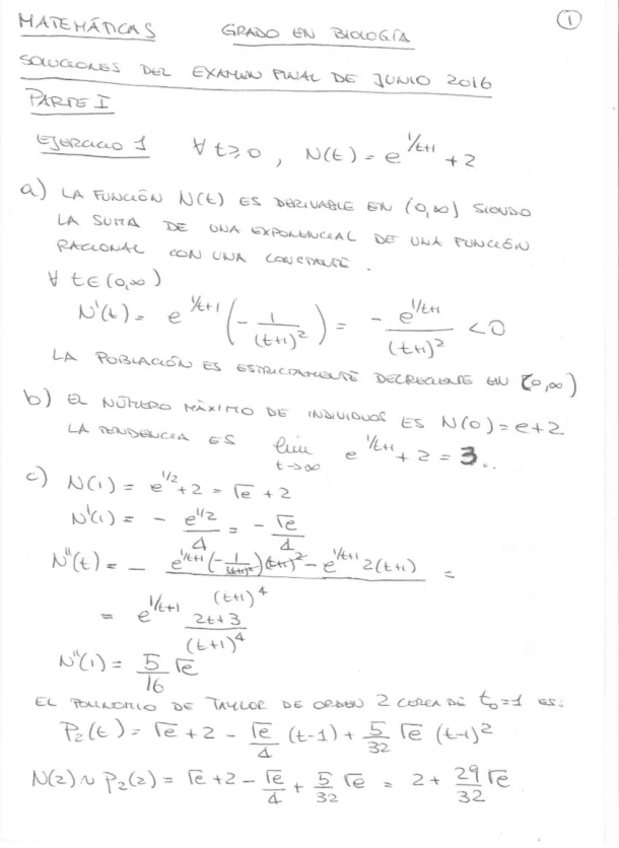 MATEMÁTICAS GRADO EN BIOLOGÍA 1
SOLUCIONES DEL EXAMEN FINAL DE JUNIO 2016
PARTE I
EJERCICIO 1 ∀ t≥0, N(t) = e^{1/t+1} + 2
a) LA FUNCIÓN N(t) ES DERIVABLE EN (0,∞) SIENDO
LA SUMA DE UNA EXPONENCIAL DE UNA FUNCIÓN
RACIONAL CON UNA CONSTANTE.
∀ t∈(0,∞)
N'(t) = e^{1/t+1} (- 1/(t+1)^2) = - e^{1/t+1}/(t+1)^2 < 0
LA POBLACIÓN ES ESTRICTAMENTE DECRECIENTE EN [0,∞)
b) EL NÚMERO MÁXIMO DE INDIVIDUOS ES N(0) = e+2
LA TENDENCIA ES lim_{t→∞} e^{1/t+1} + 2 = 3..
c) N(1) = e^{1/2} + 2 = √e + 2
N'(1) = - e^{1/2}/4 = - √e/4
N''(t) = - (e^{1/t+1} (- 1/(t+1)^2) (t+1)^2 - e^{1/t+1} 2(t+1))/(t+1)^4 =
= e^{1/t+1} (2t+3)/(t+1)^4
N''(1) = 5/16 √e
EL POLINOMIO DE TAYLOR DE ORDEN 2 CERCA DE t_0=1 ES:
P_2(t) = √e + 2 - √e/4 (t-1) + 5/32 √e (t-1)^2
N(2) ~ P_2(2) = √e + 2 - √e/4 + 5/32 √e = 2 + 29/32 √e